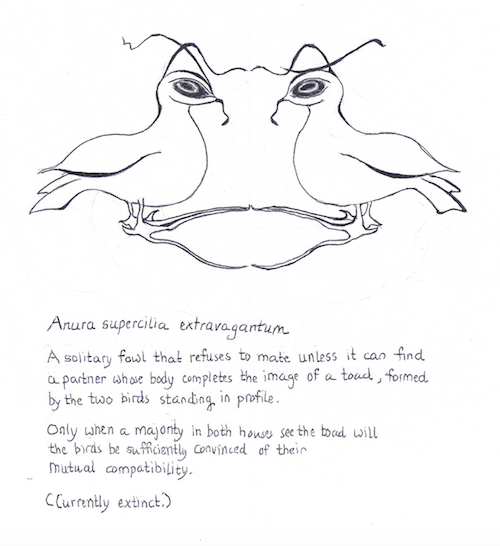 Anura supercilia extravagantum
A solitary fowl that refuses to mate unless it can find
a partner whose body completes the image of a toad, formed
by the two birds standing in profile.
Only when a majority in both houses see the toad will
the birds be sufficiently convinced of their
mutual compatibility.
(Currently extinct.)